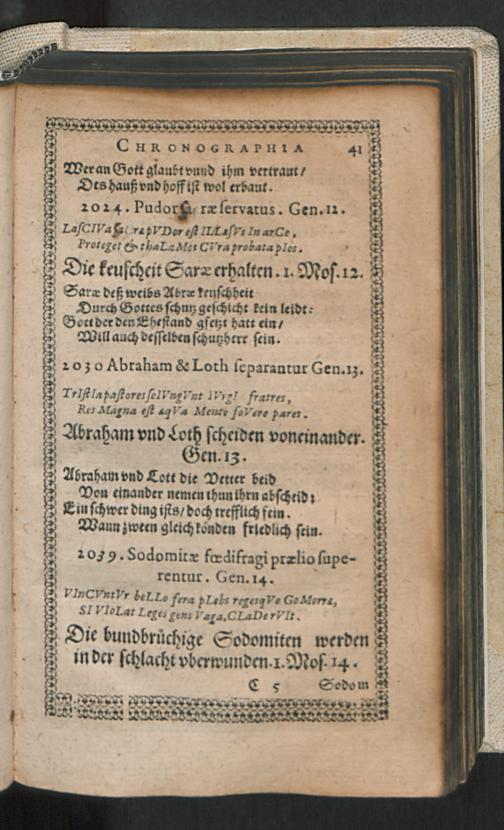 CHRONOGRAPHIA 41
Wer an Gott glaubt vnnd ihm vertraut/
Des hauß vnd hoff ist wol erbaut.
2024. Pudor Saræ servatus. Gen. 12.
LasCIVa pVDor est ILLæsVs In arCe,
Proteget & thaLaMos CVra probata pIos.
Die keuscheit Saræ erhalten. 1. Mos. 12.
Saræ deß weibs Abræ keuschheit
Durch Gottes schutz geschicht kein leidt:
Gott der den Ehestand gsetzt hatt ein/
Will auch desselben schutzherr sein.
2030 Abraham & Loth separantur Gen. 13.
TrIstIa pastores seIVngVnt IVrgI fratres,
Res Magna est æqVa Mente foVere pares.
Abraham vnd Loth scheiden voneinander.
Gen. 13.
Abraham vnd Lott die Vetter beid
Von einander nemen thun ihrn abscheid:
Ein schwer ding ists/ doch trefflich fein.
Wann zween gleich könden friedlich sein.
2039. Sodomitæ fœdifragi prælio supe-
rentur. Gen. 14.
VInCVntVr beLLo fera pLebs regesqVe GoMorræ,
SI VIoLat Leges gens Vaga, CLaDe rVIt.
Die bundbrüchige Sodomiten werden
in der schlacht vberwunden. 1. Mos. 14.
C 5 Sodom